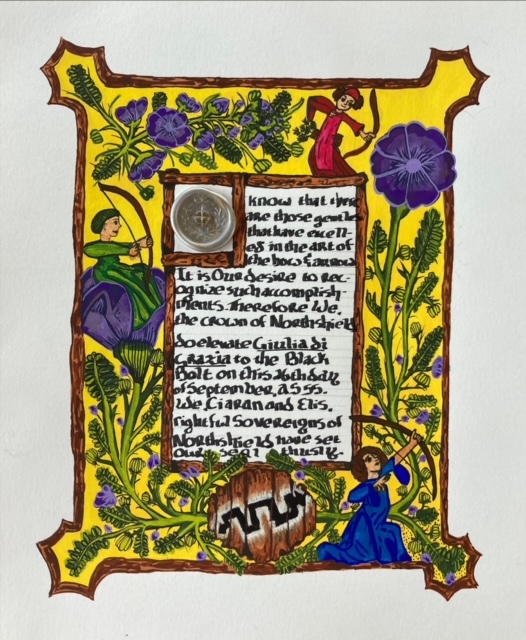 know that there
are those gentles
that have excell-
ed in the art of
the bow & arrow
It is Our desire to rec-
ognize such accomplish-
ments. Therefore We,
the crown of Northshield
do elevate Giulia di
Grazia to the Black
Bolt on this 26th day
of September, AS 55.
We, Ciaran and Elis,
rightful Sovereigns of
Northshield have set
our seal thusly.